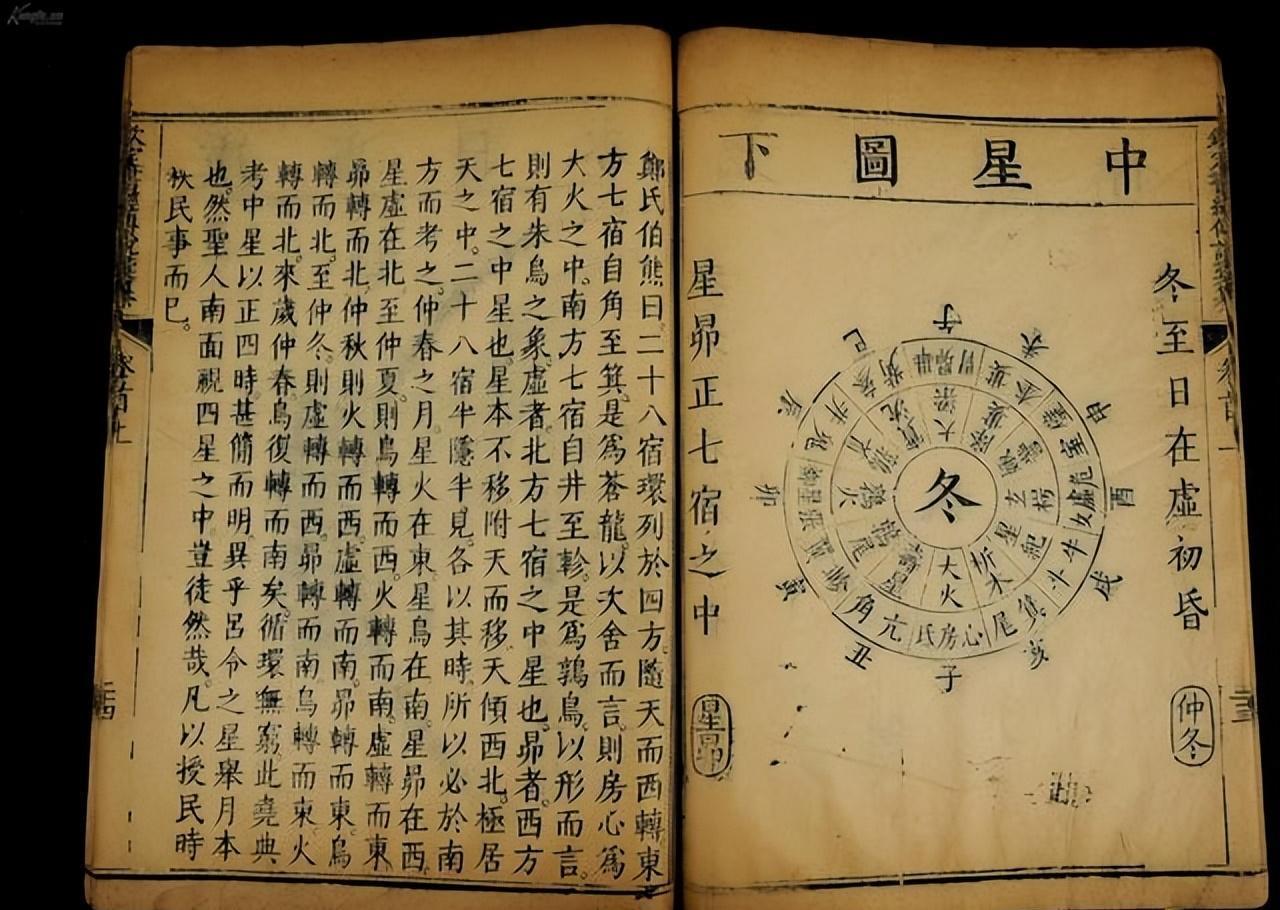 中星圖下
冬至日在虛初昏
仲冬
冬
大火
析木
星紀
玄枵
大梁
鶉火
鶉尾
壽星
角亢
氐房心
尾箕
斗牛
女虛危
午
申
酉
戌
亥
子
丑
寅
卯
辰
巳
星昴正七宿之中
星昴
鄭氏伯熊曰二十八宿環列於四方隨天而西轉東
方七宿自角至箕是爲蒼龍以次舍而言則房心爲
大火之中南方七宿自井至軫是爲鶉鳥以形而言
則有朱鳥之象虛者北方七宿之中星也昴者西方
七宿之中星也星本不移附天而移天傾西北極居
天之中二十八宿半隱半見各以其時所以必於南
方而考之仲春之月星火在東星鳥在南星昴在西
星虛在北至仲夏則鳥轉而西火轉而南虛轉而東
昴轉而北仲秋則火轉而西虛轉而南昴轉而東鳥
轉而北至仲冬則虛轉而西昴轉而南鳥轉而東火
轉而北來歲仲春鳥復轉而南矣循環無窮此堯典
考中星以正四時甚簡而明異乎呂令之星舉月本
也然聖人南面視四星之中豈徒然哉凡以授民時
秩民事而已。